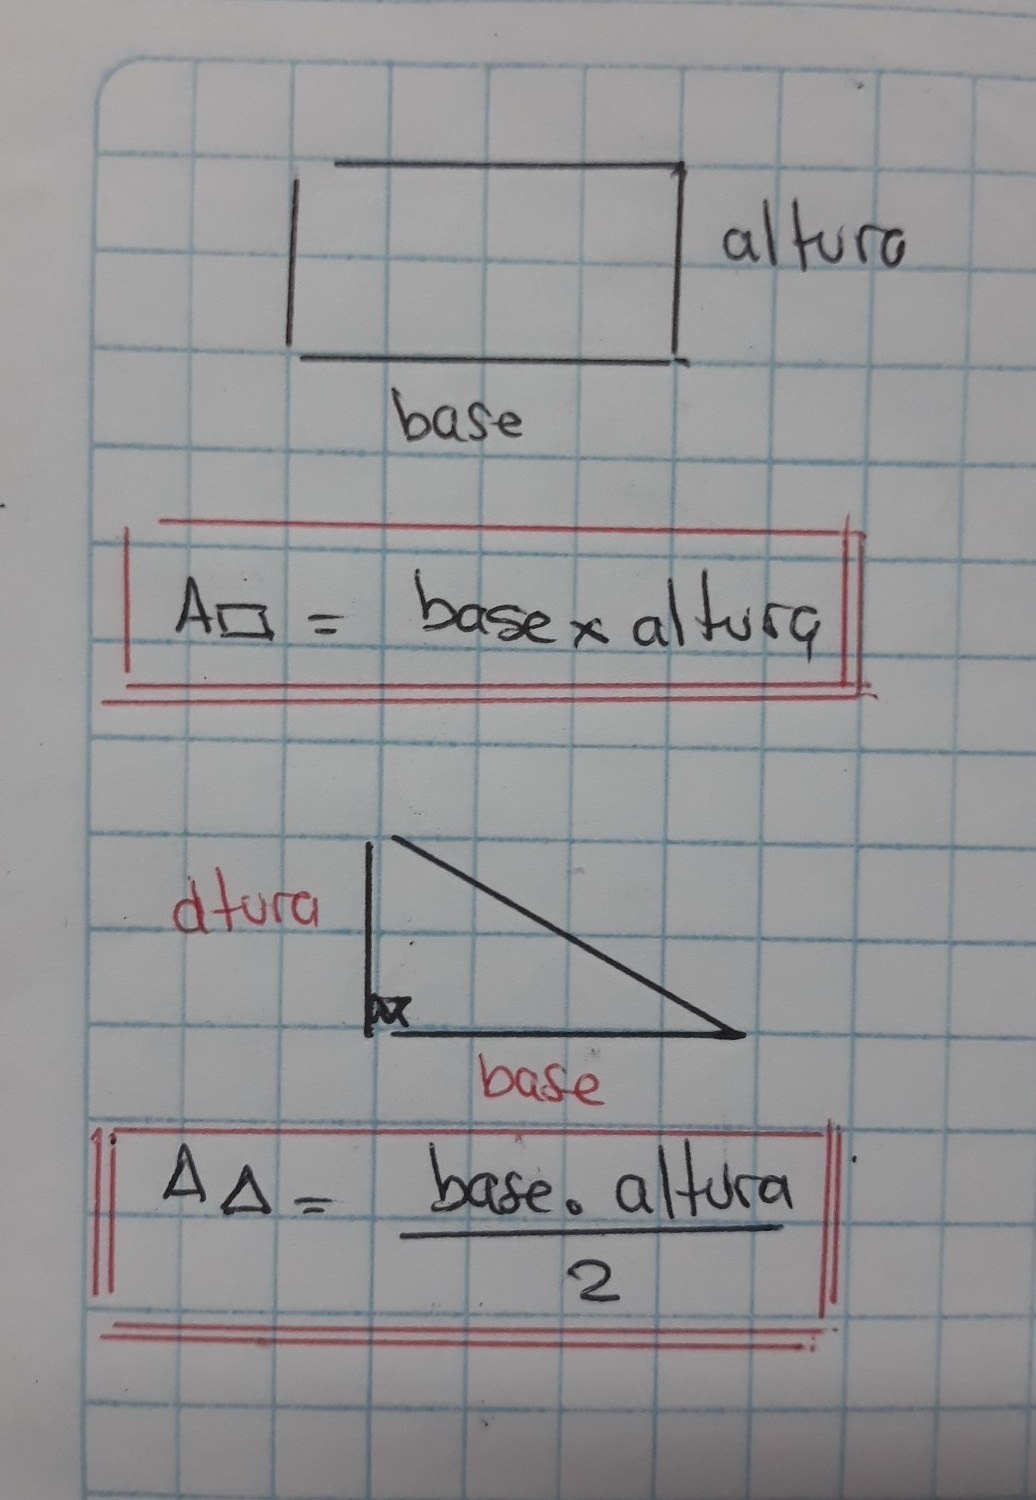 altura
base
A▭ = base x altura
altura
base
A△ = base . altura
2